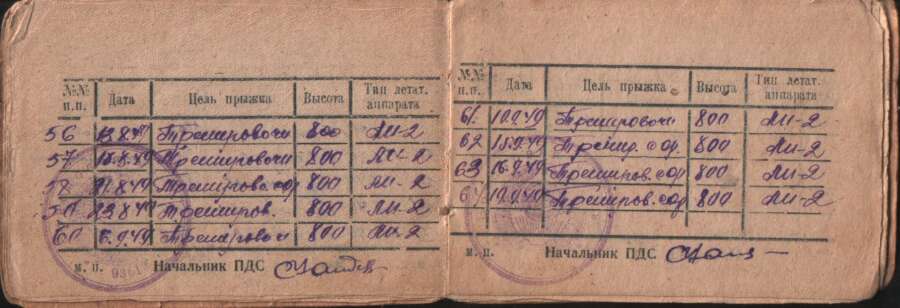 №№ п.п. Дата Цель прыжка Высота Тип летат. аппарата
56 13.8.49 Тренировочн 800 Ли-2
57 18.8.49 Тренировочн 800 Ли-2
58 21.8.49 Трениров. с ор 800 Ли-2
59 23.8.49 Трениров. 800 Ли-2
60 6.9.49 Тренировочн 800 Ли-2
м. п. Начальник ПДС
№№ п.п. Дата Цель прыжка Высота Тип летат. аппарата
61 10.9.49 Тренировочн 800 Ли-2
62 15.9.49 Тренир. с ор. 800 Ли-2
63 16.9.49 Трениров. с ор 800 Ли-2
64 17.9.49 Трениров. с ор 800 Ли-2
м. п. Начальник ПДС